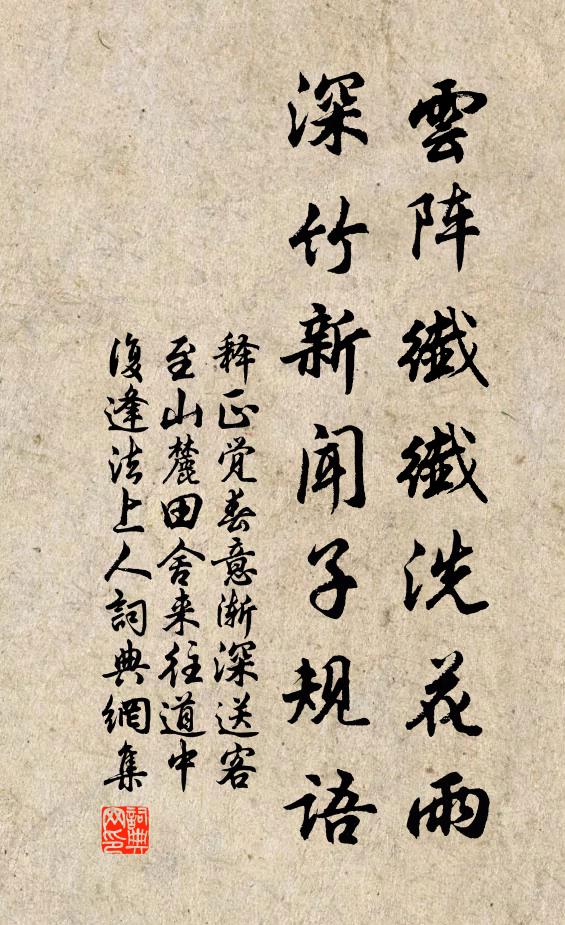 雲阵纖纖洗花雨
深竹新闻子规语
释正觉春意渐深送客
至山麓田舍来往道中
復逢法上人詞典網集
詞典网印